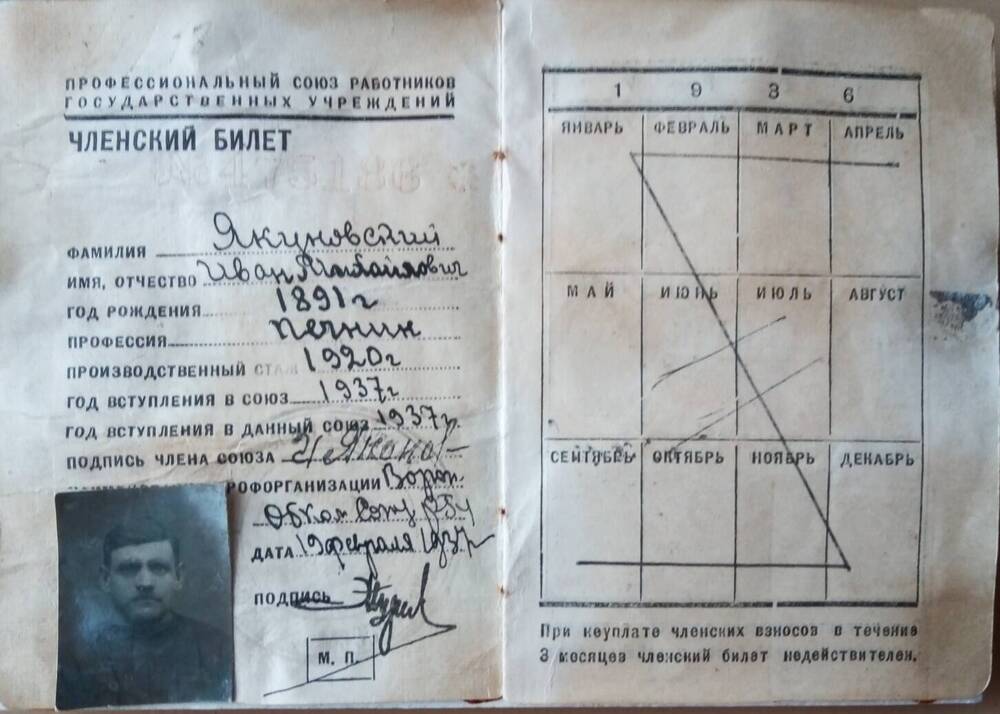 ПРОФЕССИОНАЛЬНЫЙ СОЮЗ РАБОТНИКОВ
ГОСУДАРСТВЕННЫХ УЧРЕЖДЕНИЙ
ЧЛЕНСКИЙ БИЛЕТ
ФАМИЛИЯ Якуновский
ИМЯ, ОТЧЕСТВО Иван Михайлович
ГОД РОЖДЕНИЯ 1891 г
ПРОФЕССИЯ печник
ПРОИЗВОДСТВЕННЫЙ СТАЖ 1920 г
ГОД ВСТУПЛЕНИЯ В СОЮЗ 1937 г
ГОД ВСТУПЛЕНИЯ В ДАННЫЙ СОЮЗ 1937 г
ПОДПИСЬ ЧЛЕНА СОЮЗА
РОФОРГАНИЗАЦИИ Ворон.
Обком Союз РГУ
ДАТА 19 февраля 1937 г
ПОДПИСЬ
М. П.
1 9 3 6
ЯНВАРЬ ФЕВРАЛЬ МАРТ АПРЕЛЬ
МАЙ ИЮНЬ ИЮЛЬ АВГУСТ
СЕНТЯБРЬ ОКТЯБРЬ НОЯБРЬ ДЕКАБРЬ
При неуплате членских взносов в течение
3 месяцев членский билет недействителен.